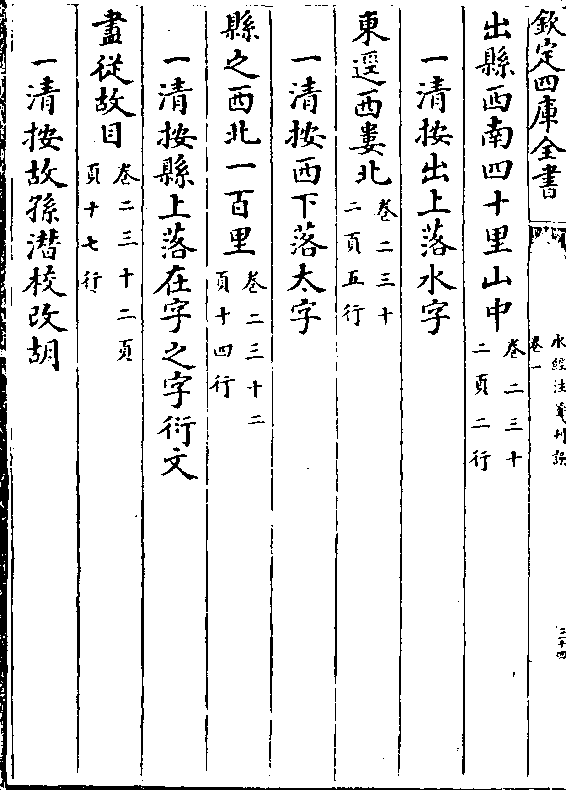 欽定四庫全書
水經注箋刊誤
卷一
三十四
出縣西南四十里山中
卷二三十
二頁二行
一清按出上落水字
東逕西婁北
卷二三十
二頁五行
一清按西下落太字
縣之西北一百里
卷二三十二
頁十四行
一清按縣上落在字之字衍文
盡從故目
卷二三十二頁
頁十七行
一清按故孫潛校改胡